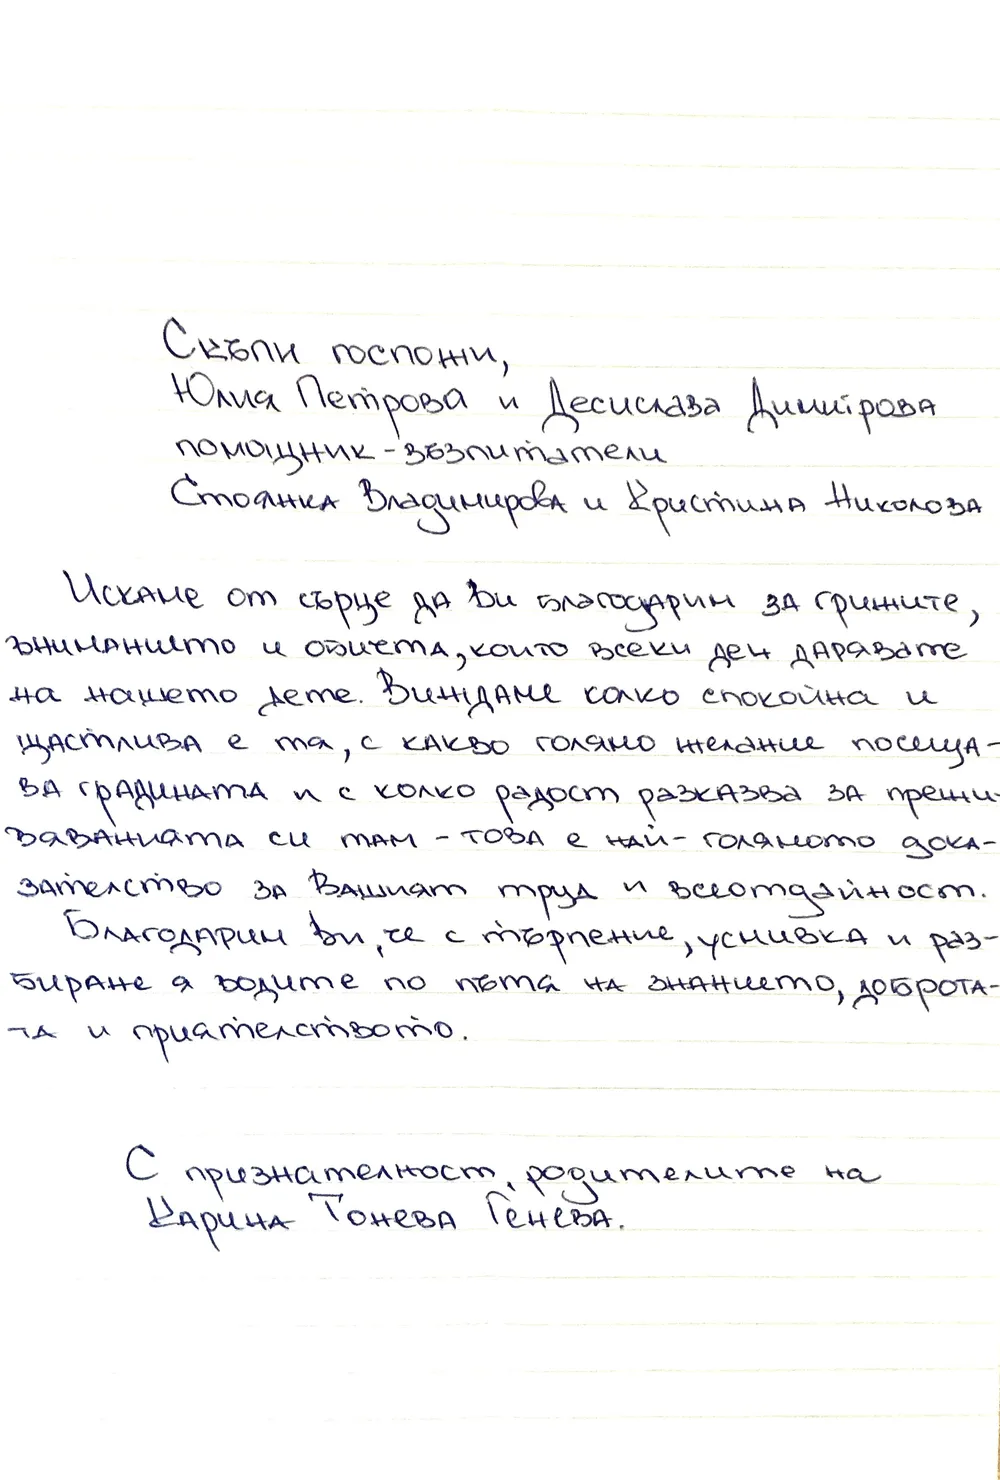 Скъпи госпожи,
Юлия Петрова и Десислава Димитрова
помощник-възпитатели
Стоянка Владимирова и Кристина Николова
Искаме от сърце да Ви благодарим за грижите,
вниманието и обичта, които всеки ден дарявате
на нашето дете. Виждаме колко спокойна и
щастлива е тя, с какво голямо желание посеща-
ва градината и с колко радост разказва за прежи-
вяванията си там - това е най-голямото дока-
зателство за Вашият труд и всеотдайност.
Благодарим Ви, че с търпение, усмивка и раз-
биране я водите по пътя на знанието, доброта-
та и приятелството.
С признателност, родителите на
Карина Тонева Генева.